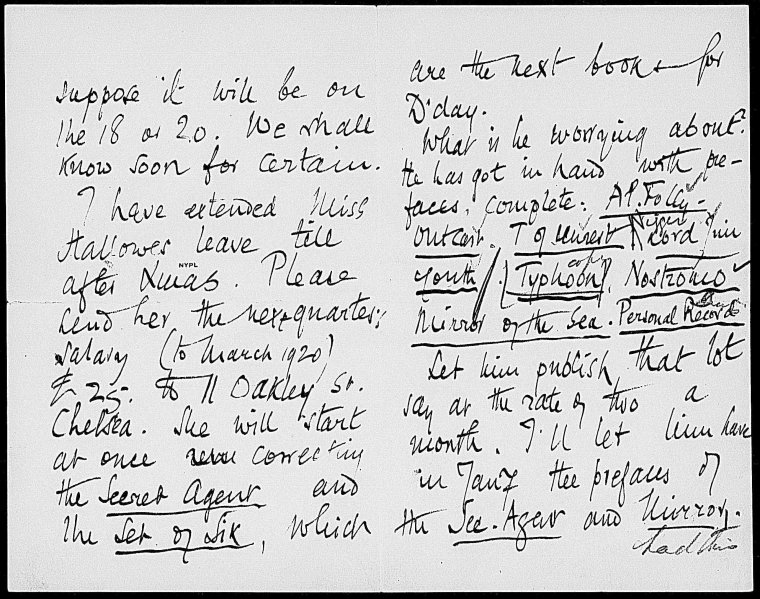 suppose it will be on
the 18 or 20. We shall
know soon for certain.
I have extended Miss
Hallowes leave till
after Xmas. Please
NYPL
send her the next quarter:s
salary (to March 1920)
£25. to 11 Oakley St.
Chelsea. She will start
at once correcting
the Secret Agent and
the Set of Six, which
are the next books for
D'day.
What is he worrying about?
He has got in hand with pre-
faces, complete: Al. Folly -
Outcast. T of Unrest Nigger Lord Jim
Youth. (Typhoon). Nostromo
Mirror of the Sea. Personal Record
Let him publish that lot
say at the rate of two a
month. I'll let him have
in Jany the prefaces of
the Sec. Agent and Mirror.
had this